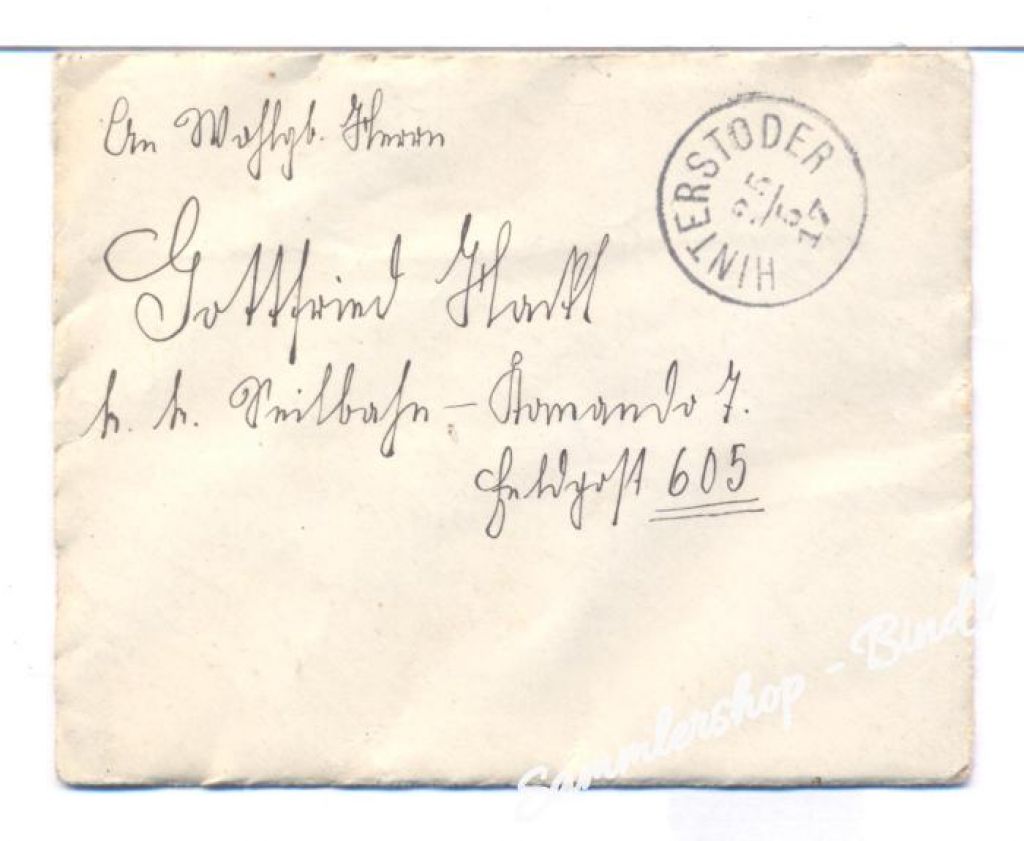 An Wohlgb. Herrn
Gottfried Hackl
k. k. Seilbahn – Komando 7.
Feldpost 605
HINTERSTODER
25/5 17
Sammlershop - Bindl